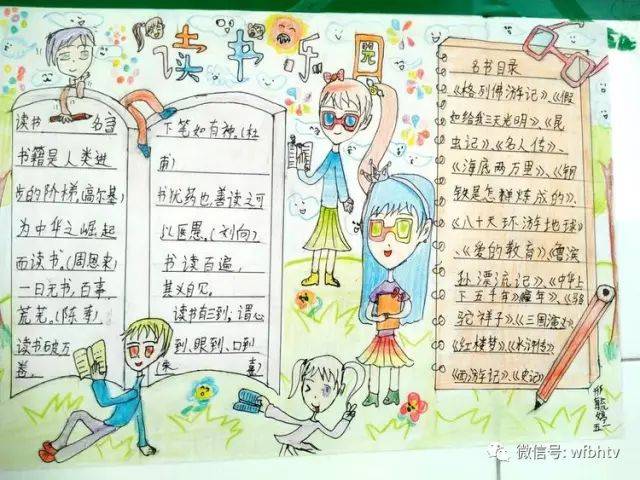 读书乐园
读书 名言
书籍是人类进
步的阶梯。(高尔基)
为中华之崛起
而读书。(周恩来)
一日无书，百事
荒芜。(陈寿)
读书破万
卷，
下笔如有神。(杜
甫)
书犹药也，善读之可
以医愚。(刘向)
书读百遍，
其义自见。
读书有三到，谓心
到、眼到、口到
(朱熹)
名书目录
《格列佛游记》、《假
如给我三天光明》、《昆
虫记》、《名人传》、
《海底两万里》、《钢
铁是怎样炼成的》、
《八十天环游地球》
、《爱的教育》、《鲁滨
孙漂流记》、《中华上
下五千年》《童年》、《骆
驼祥子》、《三国演义》
《红楼梦》、《水浒传》
《西游记》、《史记》
微信号: wfbhtv